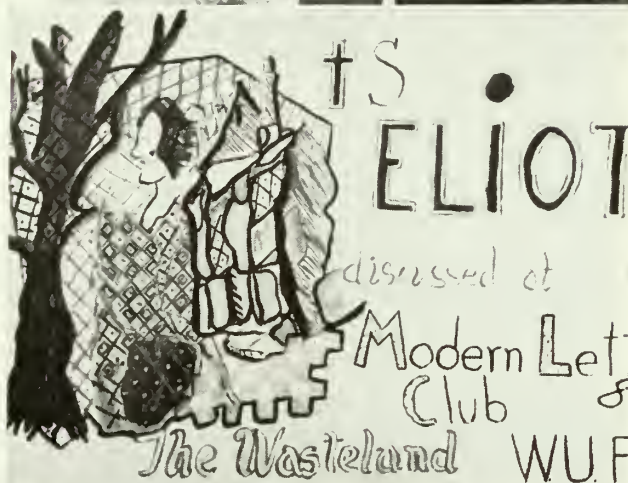 tS
ELiOT
discussed at
Modern Let
Club
The Wasteland W.U.